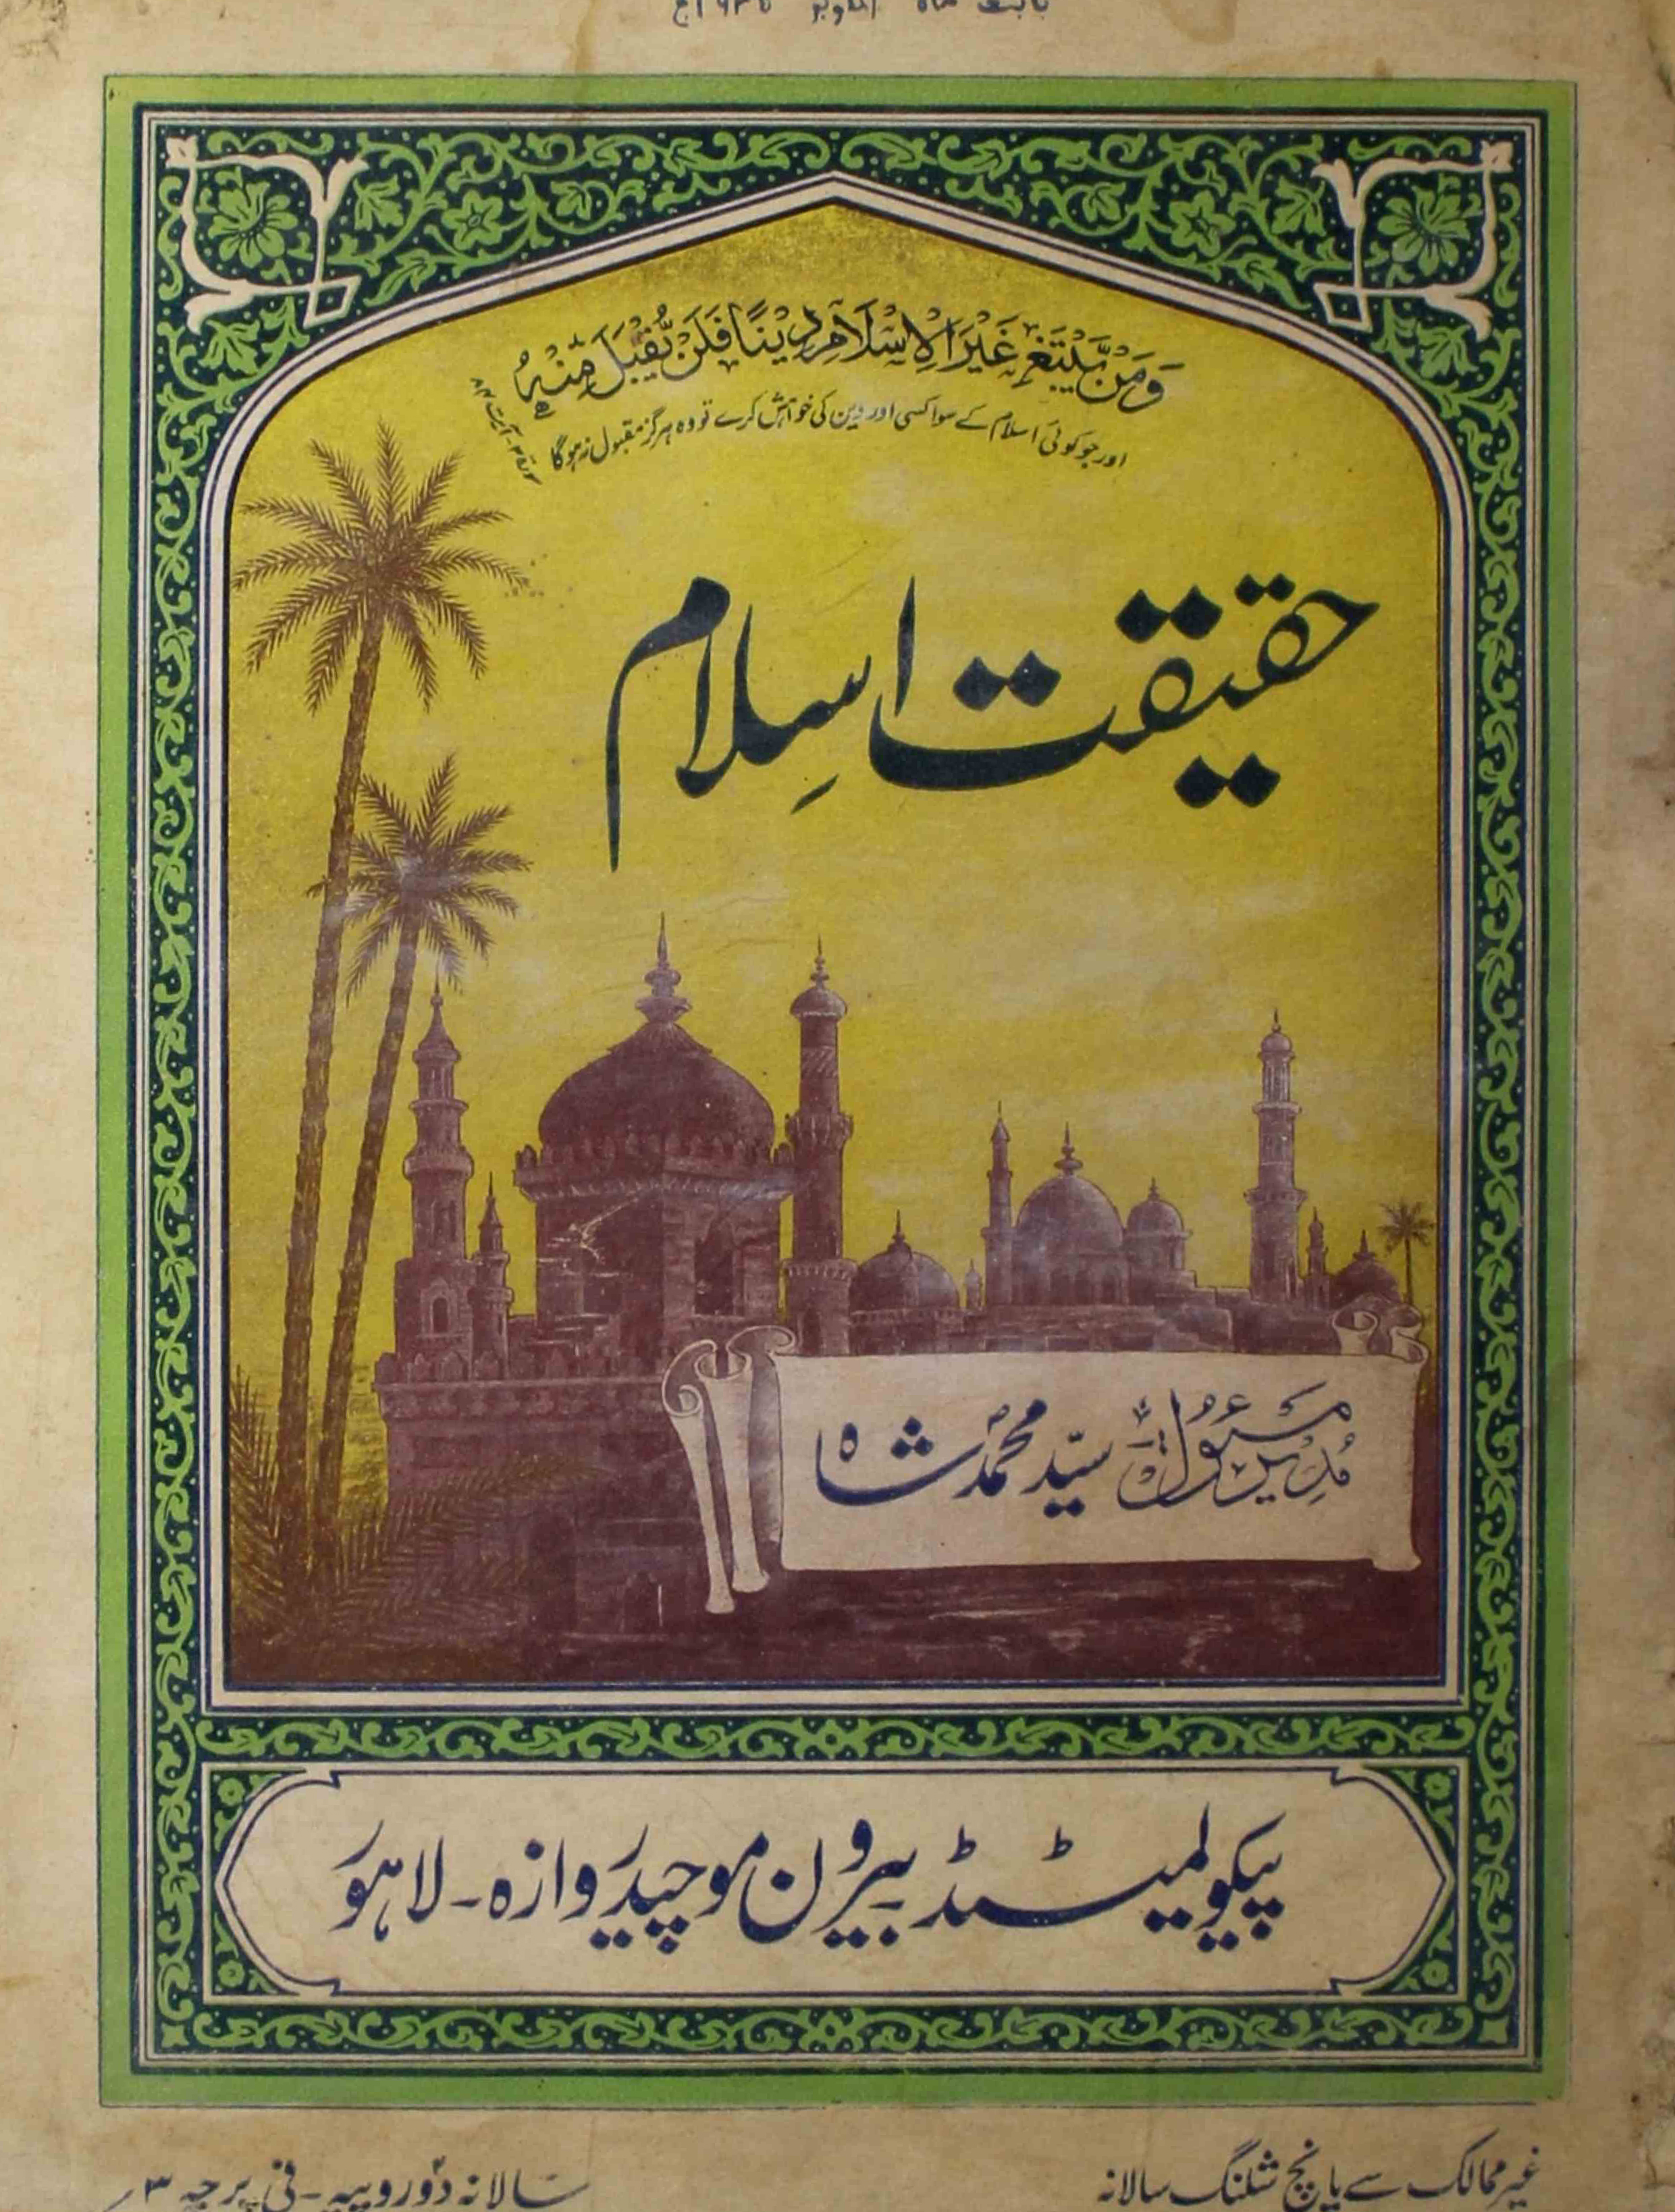 بابت ماہ اکتوبر
وَمَنْ يَّبْتَغِ غَيْرَ الْاِسْلَامِ دِيْنًا فَلَنْ يُّقْبَلَ مِنْهُ
اور جو کوئی اسلام کے سوا کسی اور دین کی خواہش کرے تو وہ ہرگز مقبول نہ ہوگا
سورۃ ۳ - آیت ۸۴
حقیقت اسلام
مدیر مسئول سید محمد شاہ
پیکو لمیٹڈ بیرون موچیدروازہ - لاہور
غیر ممالک سے پانچ شلنگ سالانہ
سالانہ دو روپیہ - فی پرچہ ۳؍